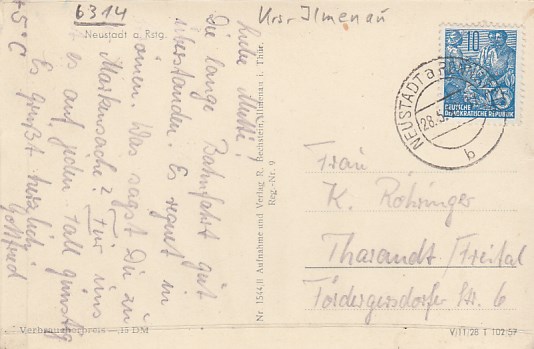 6314
Krs. Ilmenau
Neustadt a. Rstg.
+5°C
Liebe Mutti!
Die lange Bahnfahrt gut
überstanden. Es regnet in
omen. Was sagst Du zu
Markensache? Für uns
es auf jeden Fall günstig
Es grüßt herzlich
Gottfried
Verbraucherpreis — 15 DM
Nr 1544 II Aufnahme und Verlag R. Bechstein, Ilmenau i. Thür.
Reg.-Nr. 9
10
DEUTSCHE
DEMOKRATISCHE REPUBLIK
NEUSTADT a. RENNST
28.5
b
Frau
K. Röhringer
Tharandt/Freital
Fördergersdorfer Str. 6
V/11/28 T 102 57